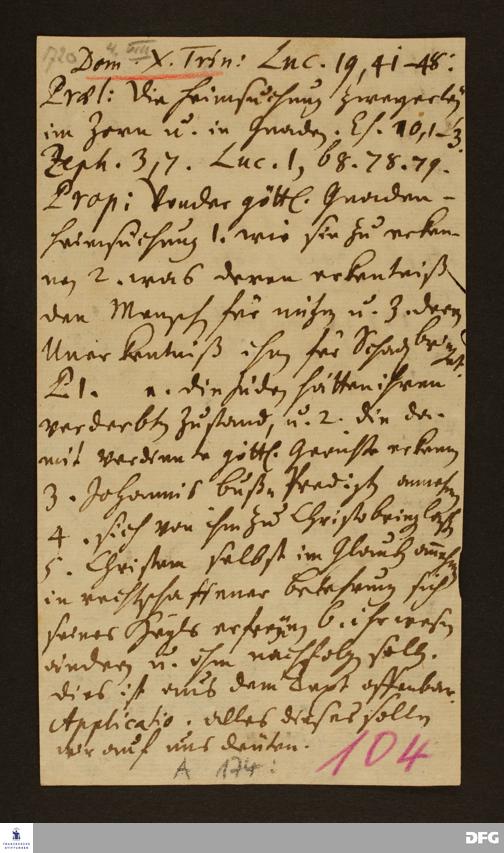 1720 4. VIII
Dom. X. Trin: Luc. 19, 41-48:
Præl: Die heimsuchung zweyerley
im Zorn u. in Gnaden. Es. 10, 1-3.
Zeph. 3, 7. Luc. 1, 68. 78. 79.
Prop: Von der göttl. Gnaden-
heimsuchung 1. wie sie zu erken-
nen 2. was deren erkentniß
den Menschen für nutzen u. 3. deren
Unerkentniß ihm für Schaden bringet.
P 1. 1. die Juden hätten ihren
verderbten Zustand, u. 2. die da-
mit verdienten göttl. Gerichte erkennen
3. Johannis buß-Predigt annehmen
4. sich von ihm zu Christo bringen lassen
5. Christum selbst im Glauben annehmen
in rechtschaffener bekehrung sich
seines Heyls erfreuen 6. ihr wesen
ändern u. ihm nachfolgen sollen.
dies ist aus dem Text offenbar.
Applicatio. alles dieses sollen
wir auf uns deuten.
104
A 174:
FRANCKESCHE
STIFTUNGEN
DFG